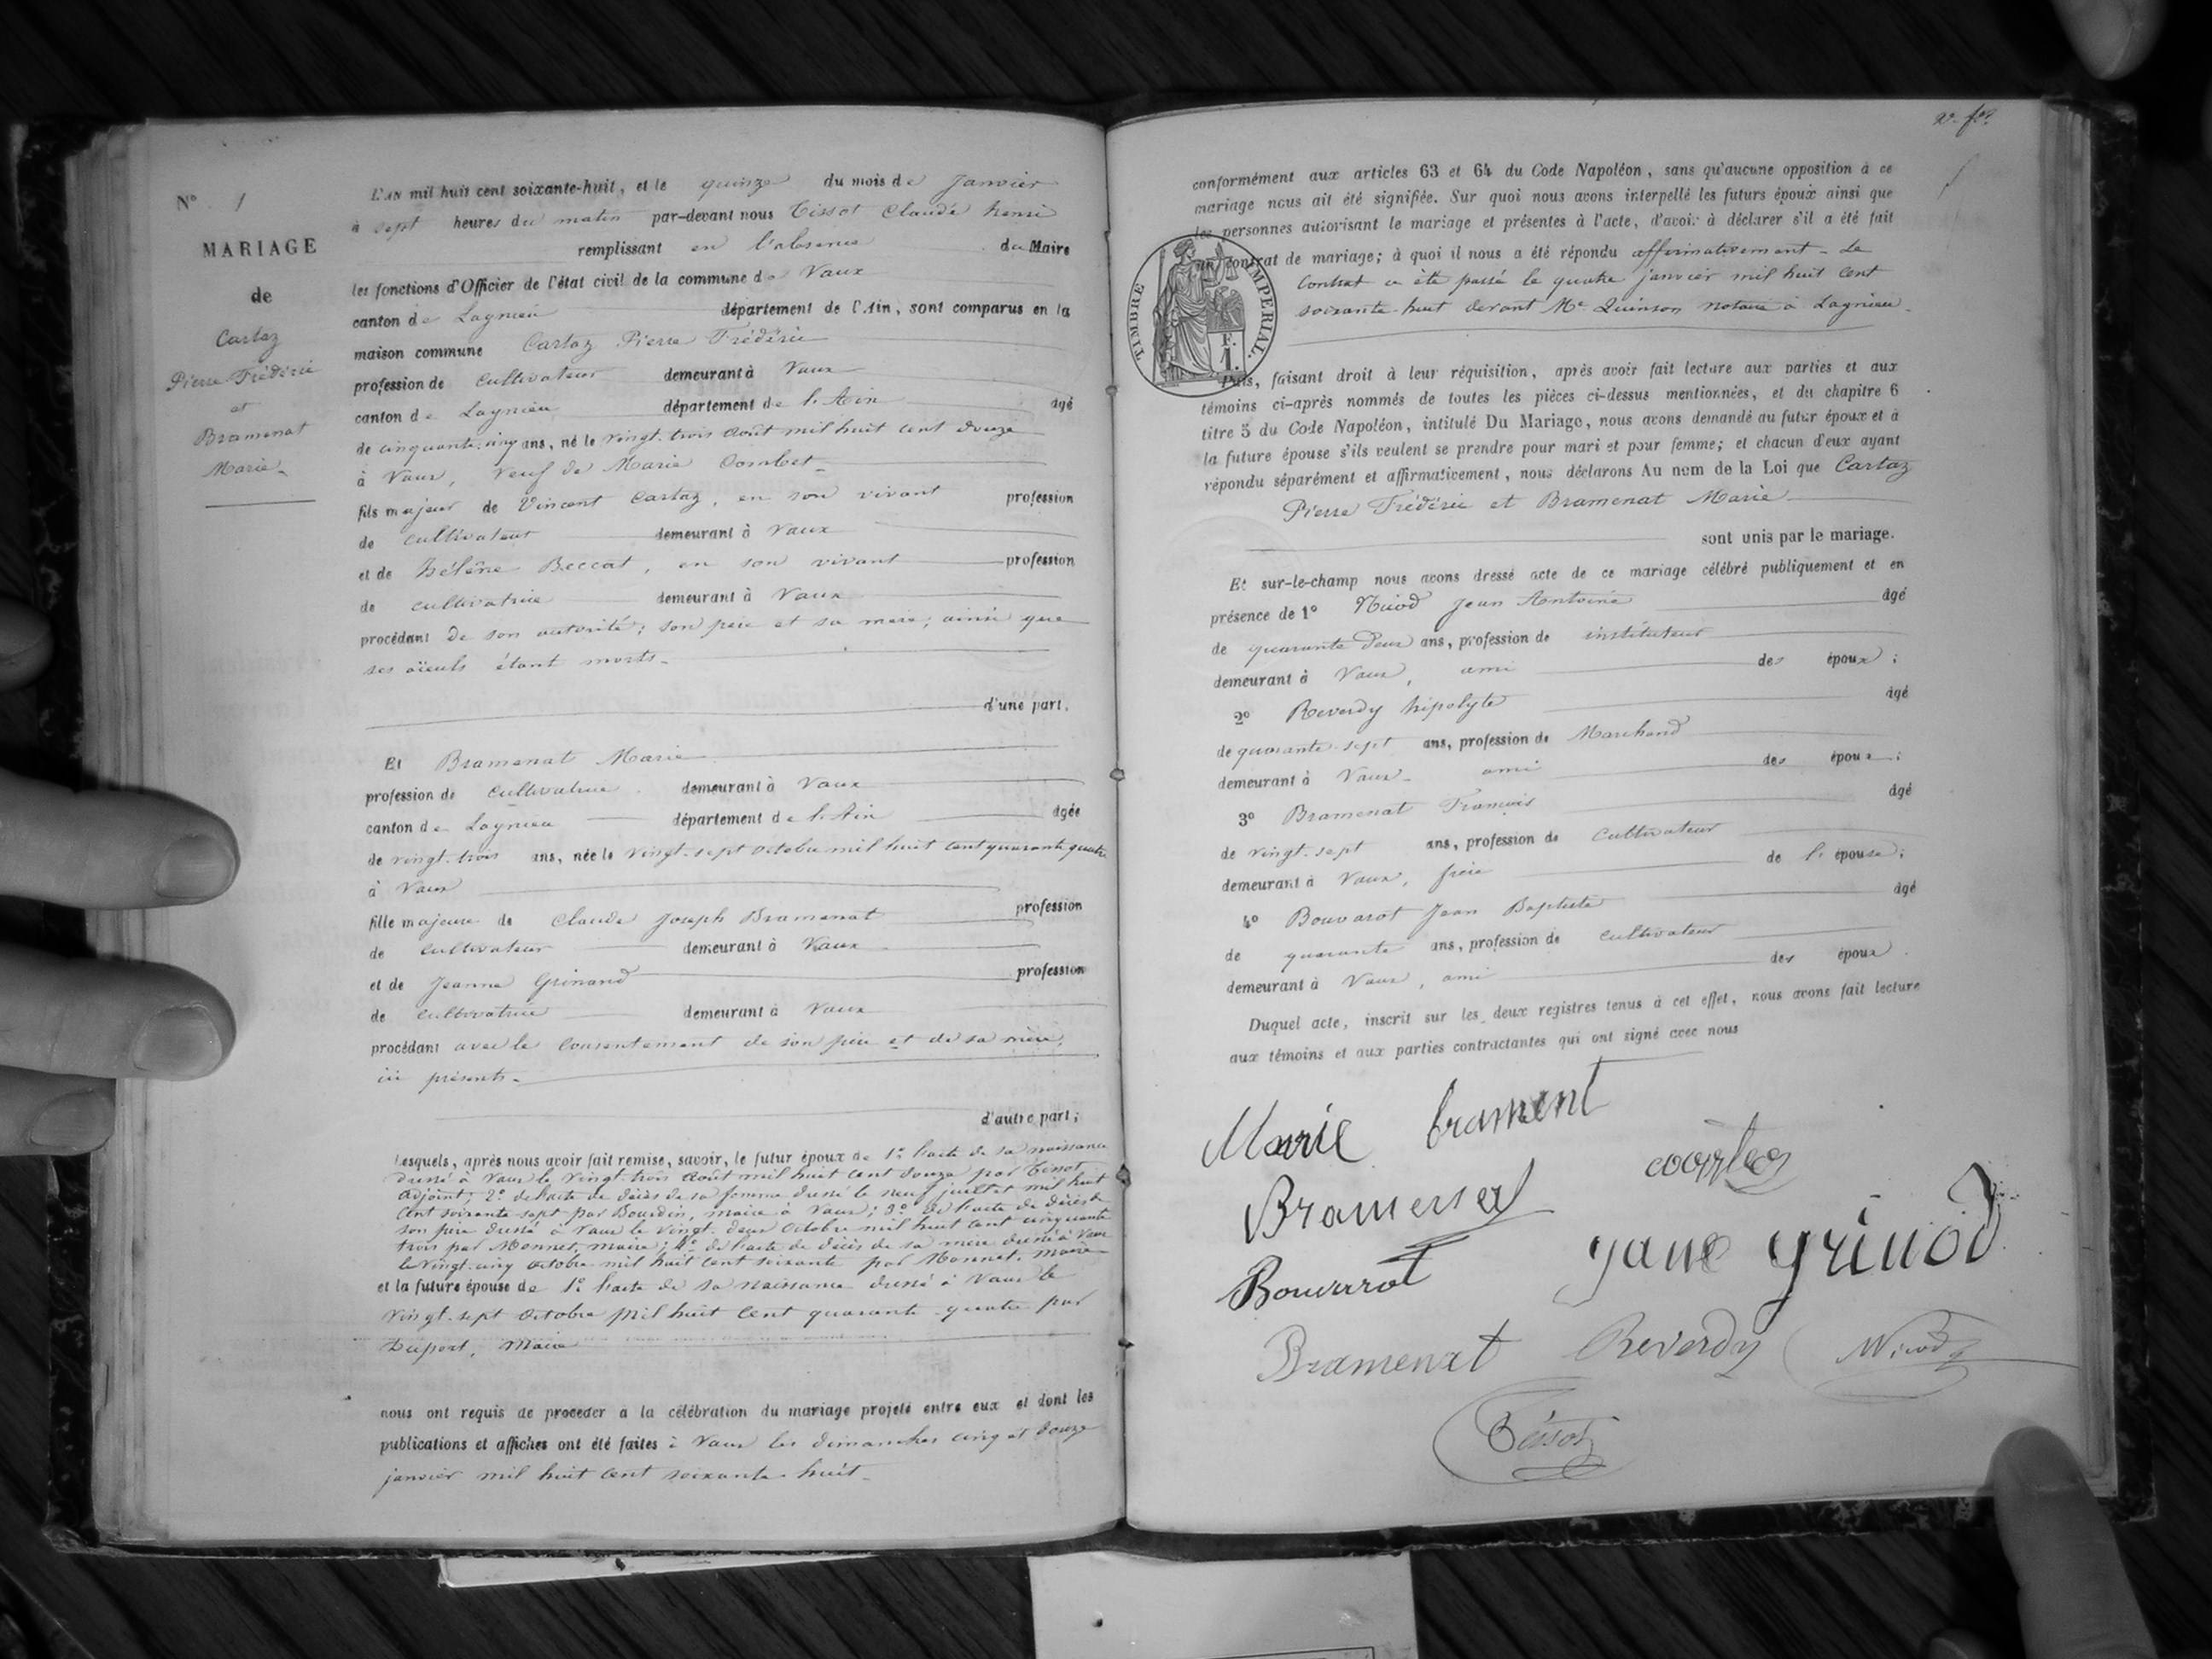 N° 1
MARIAGE
de
Cartaz
Pierre Frédéric
et
Bramenat
Marie
L'AN mil huit cent soixante-huit, et le quinze du mois de Janvier
à sept heures du matin par-devant nous Tissot Claude henri
remplissant en l'absence du Maire
les fonctions d'Officier de l'état civil de la commune de Vaux
canton de Lagnieu département de l'Ain, sont comparus en la
maison commune Cartaz Pierre Frédéric
profession de cultivateur demeurant à Vaux
canton de Lagnieu département de l'Ain âgé
de cinquante-cinq ans, né le vingt-trois août mil huit cent douze
à Vaux, veuf de Marie Combet
fils majeur de Vincent Cartaz, en son vivant profession
de cultivateur demeurant à Vaux
et de hélène Beccat, en son vivant profession
de cultivatrice demeurant à Vaux
procédant de son autorité; son père et sa mère, ainsi que
ses aïeuls étant morts.
d'une part.
Et Bramenat Marie
profession de cultivatrice demeurant à Vaux
canton de Lagnieu département de l'Ain âgée
de vingt-trois ans, née le vingt-sept octobre mil huit cent quarante quatre
à Vaux
fille majeure de Claude Joseph Bramenat profession
de cultivateur demeurant à Vaux
et de Jeanne Grinand profession
de cultivatrice demeurant à Vaux
procédant avec le consentement de son père et de sa mère,
ici présents.
d'autre part;
Lesquels, après nous avoir fait remise, savoir, le futur époux de 1° l'acte de sa naissance
dressé à Vaux le vingt-trois août mil huit cent douze par Tissot
adjoint; 2° de l'acte de décès de sa femme dressé le neuf juillet mil huit
cent soixante sept par Bourdin, maire à Vaux; 3° de l'acte de décès de
son père dressé à Vaux le vingt-deux octobre mil huit cent cinquante
trois par Monnet, maire; 4° de l'acte de décès de sa mère dressé à Vaux
le vingt-cinq octobre mil huit cent soixante par Monnet, maire
et la future épouse de 1° l'acte de sa naissance dressé à Vaux le
vingt-sept octobre mil huit cent quarante-quatre par
Dupont, Maire
nous ont requis de procéder à la célébration du mariage projeté entre eux et dont les
publications et affiches ont été faites à Vaux les dimanches cinq et douze
janvier mil huit cent soixante-huit.
conformément aux articles 63 et 64 du Code Napoléon, sans qu'aucune opposition à ce
mariage nous ait été signifiée. Sur quoi nous avons interpellé les futurs époux ainsi que
les personnes autorisant le mariage et présentes à l'acte, d'avoir à déclarer s'il a été fait
un contrat de mariage; à quoi il nous a été répondu affirmativement - Le
contrat a été passé le quatre janvier mil huit cent
soixante-huit devant Me Quinson notaire à Lagnieu.
TIMBRE IMPERIAL.
F.
1.
Puis, faisant droit à leur réquisition, après avoir fait lecture aux parties et aux
témoins ci-après nommés de toutes les pièces ci-dessus mentionnées, et du chapitre 6
titre 5 du Code Napoléon, intitulé Du Mariage, nous avons demandé au futur époux et à
la future épouse s'ils veulent se prendre pour mari et pour femme; et chacun d'eux ayant
répondu séparément et affirmativement, nous déclarons Au nom de la Loi que Cartaz
Pierre Frédéric et Bramenat Marie
sont unis par le mariage.
Et sur-le-champ nous avons dressé acte de ce mariage célébré publiquement et en
présence de 1° Nicod Jean Antoine âgé
de quarante Deux ans, profession de instituteur
demeurant à Vaux, ami des époux;
2° Reverdy hipolyte âgé
de quarante-sept ans, profession de Marchand
demeurant à Vaux - ami des époux;
3° Bramenat François âgé
de vingt-sept ans, profession de cultivateur
demeurant à Vaux, frère de l'épouse;
4° Bouvarot Jean Baptiste âgé
de quarante ans, profession de cultivateur
demeurant à Vaux, ami des époux.
Duquel acte, inscrit sur les deux registres tenus à cet effet, nous avons fait lecture
aux témoins et aux parties contractantes qui ont signé avec nous
Marie brament
Bramenat
Bouvarot
jane grinod
Bramenat Reverdy Nicod
Tissot